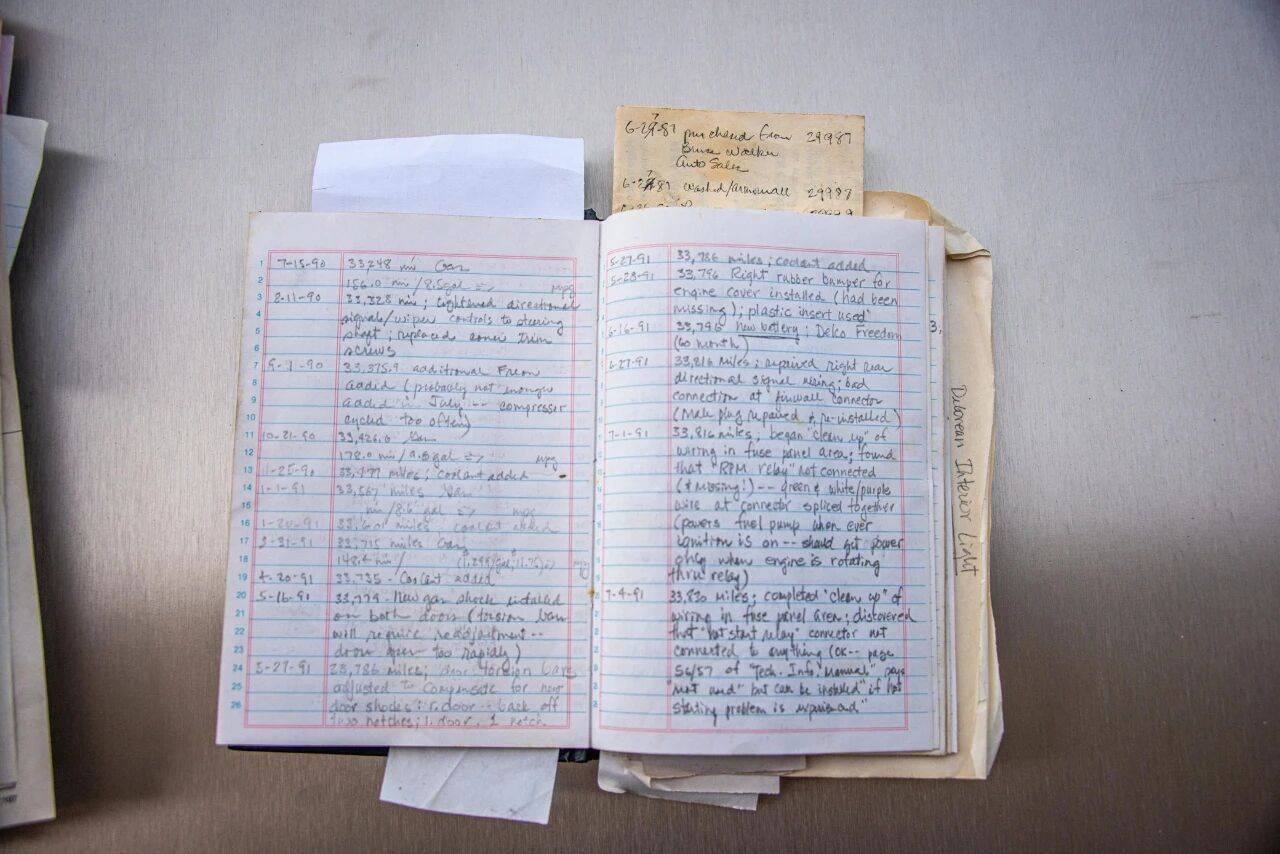 6-29-87 purchased from 29987
Bruce Walker
Auto Sales
6-2 87 washed/armorall 29987
1 7-15-90 33,248 mi Gas
2 156.0 mi/8.5gal => mpg
3 8-11-90 33,328 mi; tightened directional
4 signals/wiper controls to steering
5 shaft; replaced trim
6 screws
7 9-1-90 33,375.9 additional Freon
8 added (probably not enough
9 added in July -- compressor
10 cycled too often)
11 10-21-90 33,426.0 Gas
12 178.0 mi/9.8gal => mpg
13 11-25-90 33,477 miles; coolant added
14 1-1-91 33,567 miles Gas
15 mi/8.6 gal => mpg
16 1-20-91 33,601 miles coolant added
17 3-31-91 33,715 miles Gas
18 148.4 mi/ mpg
19 4-20-91 33,735 - Coolant added
20 5-16-91 33,779 - New gas shocks installed
21 on both doors (torsion bars
22 will require readjustment --
23 doors open too rapidly)
24 5-27-91 33,786 miles; door torsion bars
25 adjusted to compensate for new
26 door shocks: r. door -- back off
two notches; l. door, 1 notch
5-27-91 33,786 miles; coolant added
5-28-91 33,796 Right rubber bumper for
engine cover installed (had been
missing); plastic insert used
6-16-91 33,796 new battery: Delco Freedom
(60 month)
6-27-91 33,816 miles; repaired right rear
directional signal wiring; bad
connection at firewall connector
(Male plug repaired & re-installed)
7-1-91 33,816 miles; began "clean up" of
wiring in fuse panel area; found
that "RPM relay" not connected
(& missing!) -- green & white/purple
wire at connector spliced together
(powers fuel pump when ever
ignition is on -- should get power
only when engine is rotating
thru relay)
7-4-91 33,830 miles; completed "clean up" of
wiring in fuse panel area; discovered
that "hot start relay" connector not
connected to anything (OK -- page
56/57 of "Tech. Info. Manual" says
"not used" but can be installed "if hot
starting problem is experienced"
3,
Delorean Interior Light